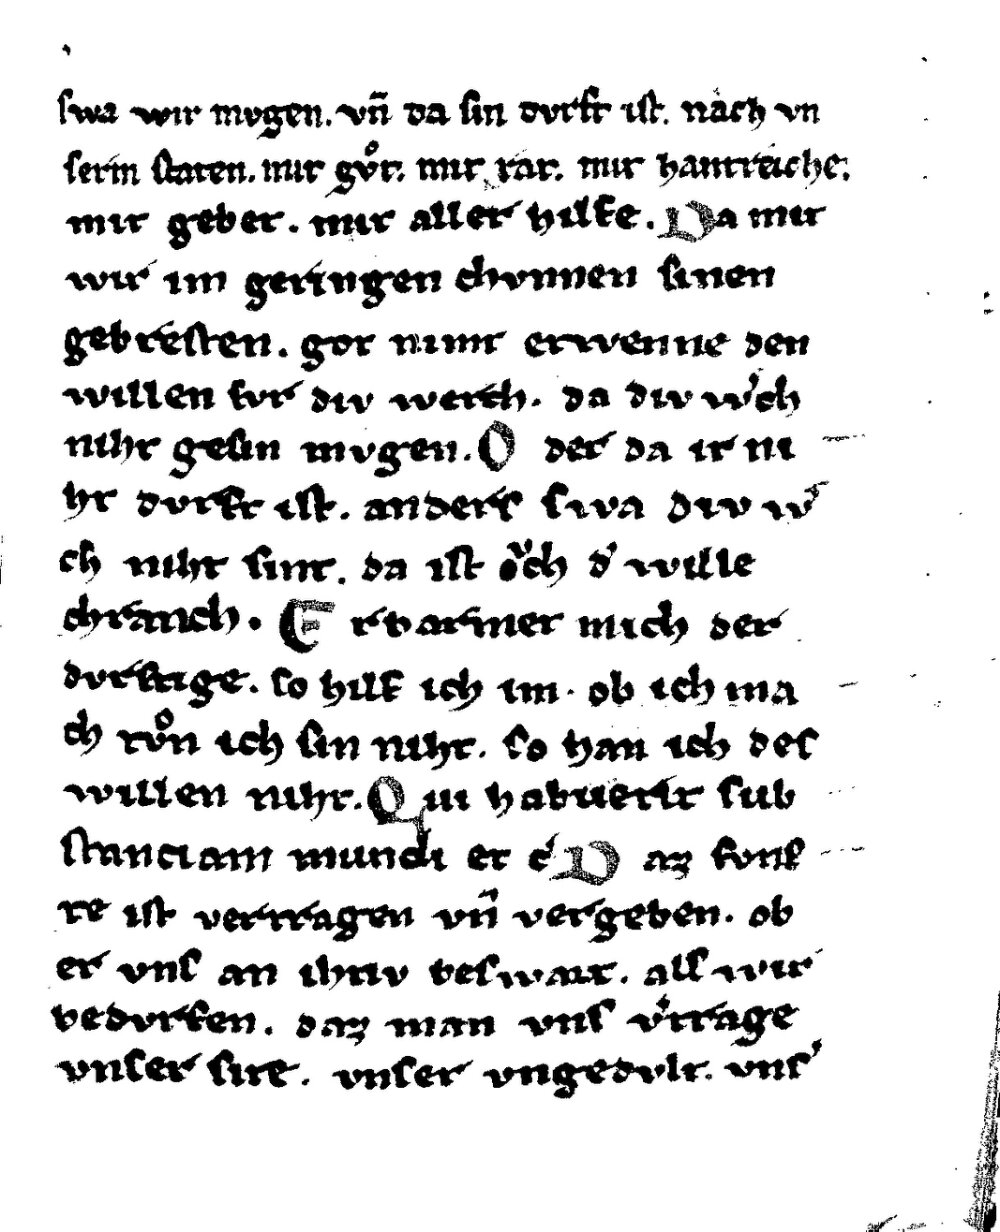 swa wir mvgen. vn̄ da sin dvrft ist. nach vn
serm staten. mit gv̊t. mit rat. mit hantreiche.
mit geber. mit aller hilfe. Da mit
wir im geringen chvnnen sinen
gebresten. got nimt etwenne den
willen fvr div werch. da div w͛ch
niht gesin mvgen. O der da ir ni
ht dvrft ist. anders swa div w͛
ch niht sint. da ist ovch d͛ wille
chranch. Erbarmet mich der
dvrftige. so hilf ich im. ob ich ma
ch tv̊n ich sin niht. so han ich des
willen niht. Qui habuerit sub
stanciam mundi et c͛ Daz fvnf
te ist vertragen vn̄ vergeben. ob
er vns an ihtiv beswart. als wir
bedvrfen. daz man vns v͛trage
vnser site. vnser vngedvlt. vns͛